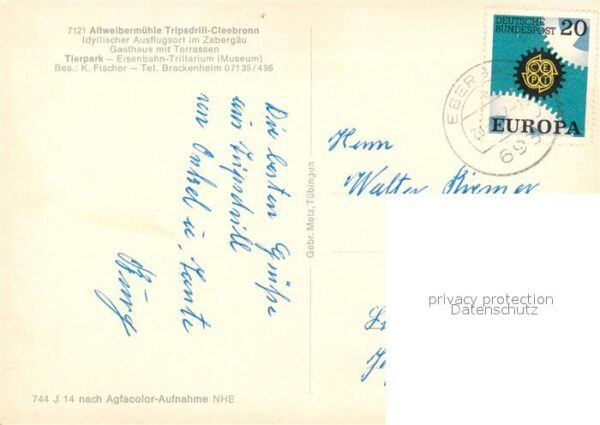 7121 Altweibermühle Tripsdrill-Cleebronn
Idyllischer Ausflugsort im Zabergäu
Gasthaus mit Terrassen
Tierpark – Eisenbahn-Trillarium (Museum)
Bes.: K. Fischer – Tel. Brackenheim 07135/496
DEUTSCHE
BUNDESPOST 20
CEPT
EUROPA
EBERB
693
Die besten Grüße
aus Tripsdrill
von Onkel u. Tante
Bürg
Gebr. Metz, Tübingen
Herrn
Walter Kremer
privacy protection
Datenschutz
744 J 14 nach Agfacolor-Aufnahme NHE